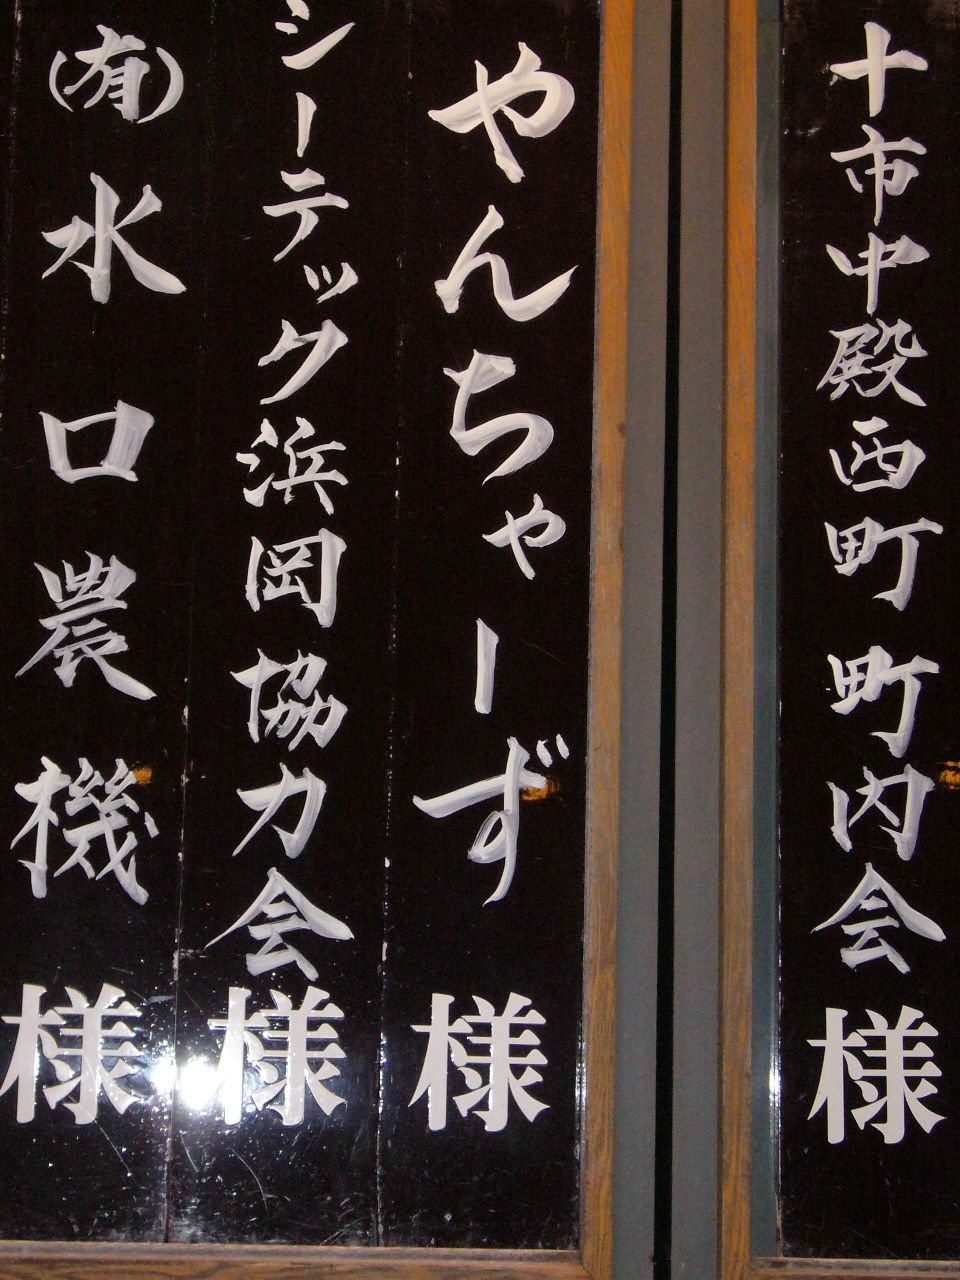 十市中殿西町町内会様
やんちゃーず様
シーテック浜岡協力会様
(有)水口農機様